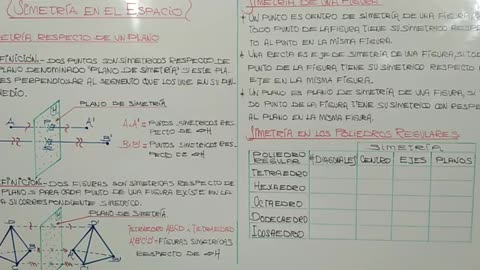 SIMETRÍA EN EL ESPACIO
ETRÍA RESPECTO DE UN PLANO
EFINICIÓN.- DOS PUNTOS SON SIMÉTRICOS RESPECTO DE
PLANO DENOMINADO "PLANO DE SIMETRÍA", SI ESTE PLA-
ES PERPENDICULAR AL SEGMENTO QUE LOS UNE EN SU PUN
MEDIO.
PLANO DE SIMETRÍA
H
A
P
A'
B
B'
A ∧ A' = PUNTOS SIMÉTRICOS RESPEC
DE ▱H
B ∧ B' = PUNTOS SIMÉTRICOS RESPEC
DE ▱H
EFINICIÓN.- DOS FIGURAS SON SIMÉTRICAS RESPECTO DE
PLANO SI PARA CADA PUNTO DE UNA FIGURA EXISTE EN LA
A SU CORRESPONDIENTE SIMÉTRICO.
PLANO DE SIMETRÍA
TETRAEDRO ABCD ∧ TETRAEDRO
A'B'C'D' = FIGURAS SIMÉTRICAS
RESPECTO DE ▱H
SIMETRÍA DE UNA FIGURA
UN PUNTO ES CENTRO DE SIMETRÍA DE UNA FIGURA, S
TODO PUNTO DE LA FIGURA TIENE SU SIMÉTRICO RESPE
TO AL PUNTO EN LA MISMA FIGURA.
UNA RECTA ES EJE DE SIMETRÍA DE UNA FIGURA, SI TOD
PUNTO DE LA FIGURA TIENE SU SIMÉTRICO RESPECTO
EJE EN LA MISMA FIGURA.
UN PLANO ES PLANO DE SIMETRÍA DE UNA FIGURA, SI
DO PUNTO DE LA FIGURA TIENE SU SIMÉTRICO CON RESPE
AL PLANO EN LA MISMA FIGURA.
SIMETRÍA EN LOS POLIEDROS REGULARES
SIMETRÍA
POLIEDRO REGULAR # DIAGONALES CENTRO EJES PLANOS
TETRAEDRO
HEXAEDRO
OCTAEDRO
DODECAEDRO
ICOSAEDRO